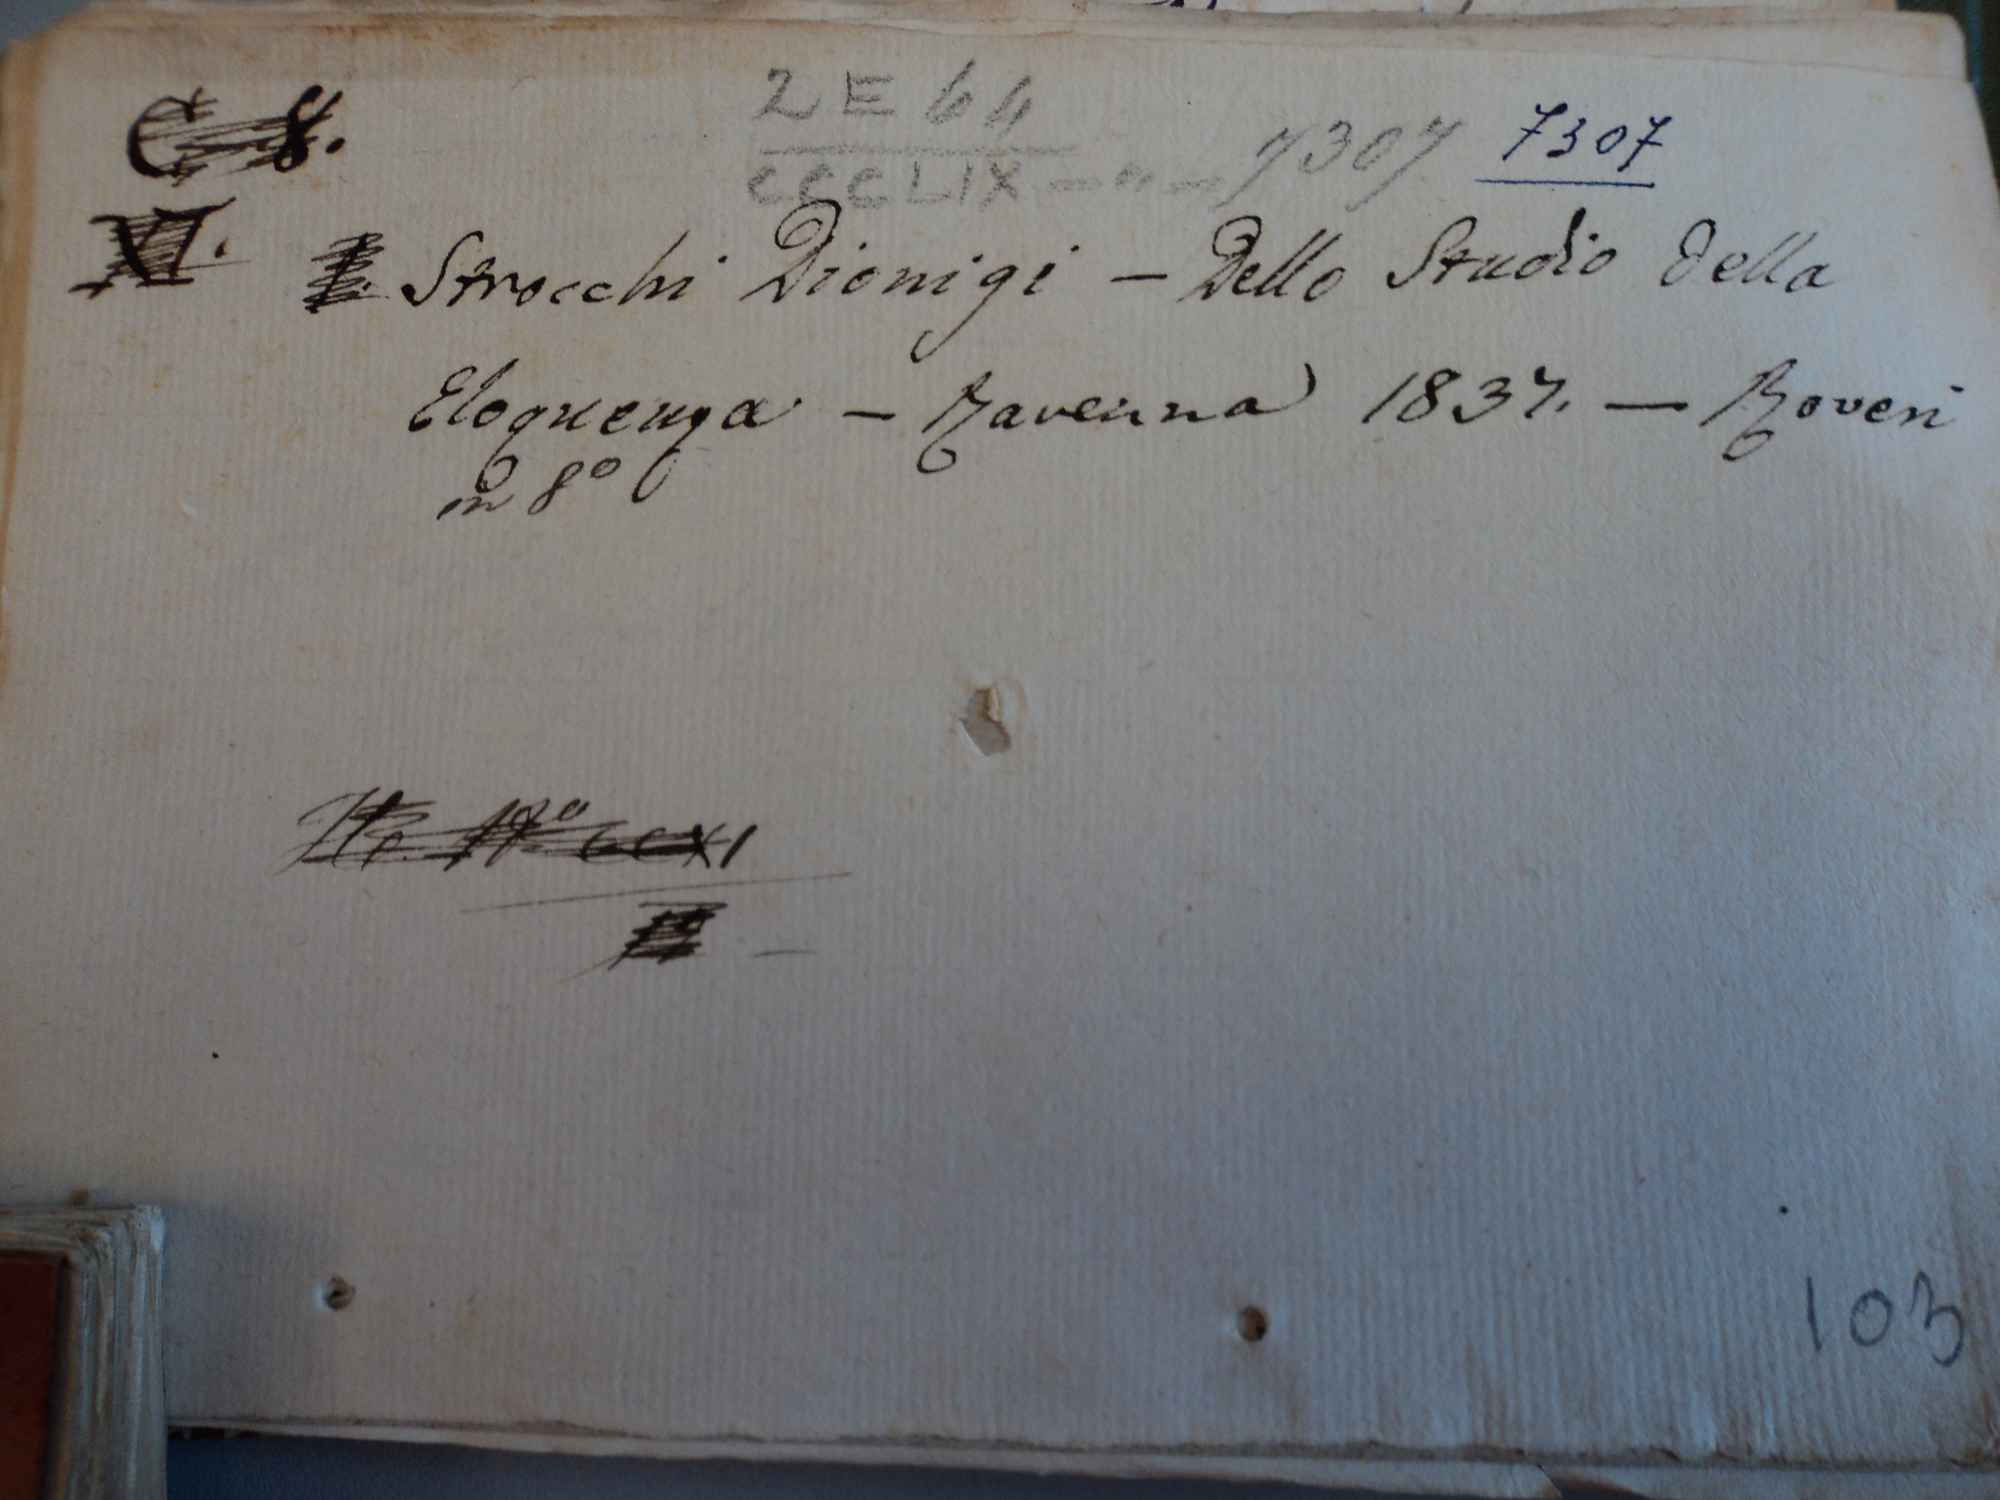 C 8.
2 E 64
CCCLIX — " — 7307 7307
XI.
Strocchi Dionigi — Dello Studio della
Eloquenza — Ravenna 1837. — Roveri
in 8º
CCXI
103